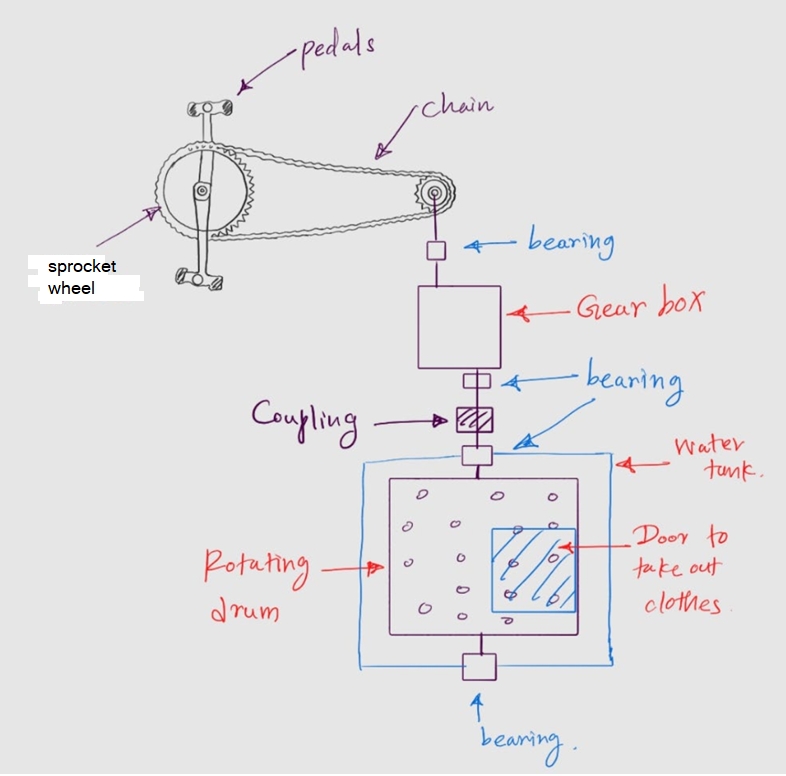 pedals
chain
sprocket
wheel
bearing
Gear box
bearing
Coupling
Water
tank.
Rotating
drum
Door to
take out
clothes.
bearing.